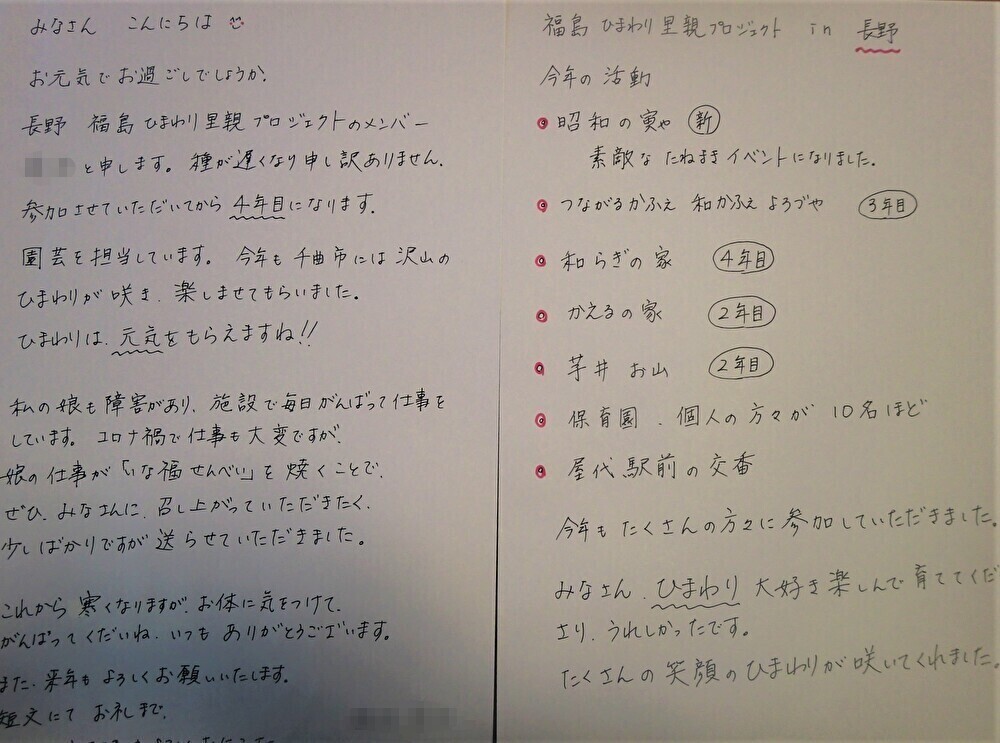 みなさん こんにちは
お元気でお過ごしでしょうか.
長野 福島ひまわり里親プロジェクトのメンバー
と申します。種が遅くなり申し訳ありません.
参加させていただいてから 4年目になります.
園芸を担当しています。 今年も千曲市には沢山の
ひまわりが咲き、楽しませてもらいました。
ひまわりは、元気をもらえますね!!
私の娘も障害があり、施設で毎日がんばって仕事を
しています。コロナ禍で仕事も大変ですが、
娘の仕事が「いな福せんべい」を焼くことで、
ぜひ、みなさんに、召し上がっていただきたく、
少しばかりですが送らせていただきました。
これから寒くなりますが、お体に気をつけて、
がんばってくだいね、いつもありがとうございます。
また、来年もよろしくお願いいたします。
短文にてお礼まで、
福島ひまわり里親プロジェクト in 長野
今年の活動
昭和の寅や 新
素敵なたねまきイベントになりました.
つながるかふぇ 和かふぇ よろづや 3年目
和らぎの家 4年目
かえるの家 2年目
芋井 お山 2年目
保育園、個人の方々が 10名ほど
屋代駅前の交番
今年もたくさんの方々に参加していただきました。
みなさん、ひまわり大好き楽しんで育ててくだ
さり、うれしかったです。
たくさんの笑顔のひまわりが咲いてくれました。